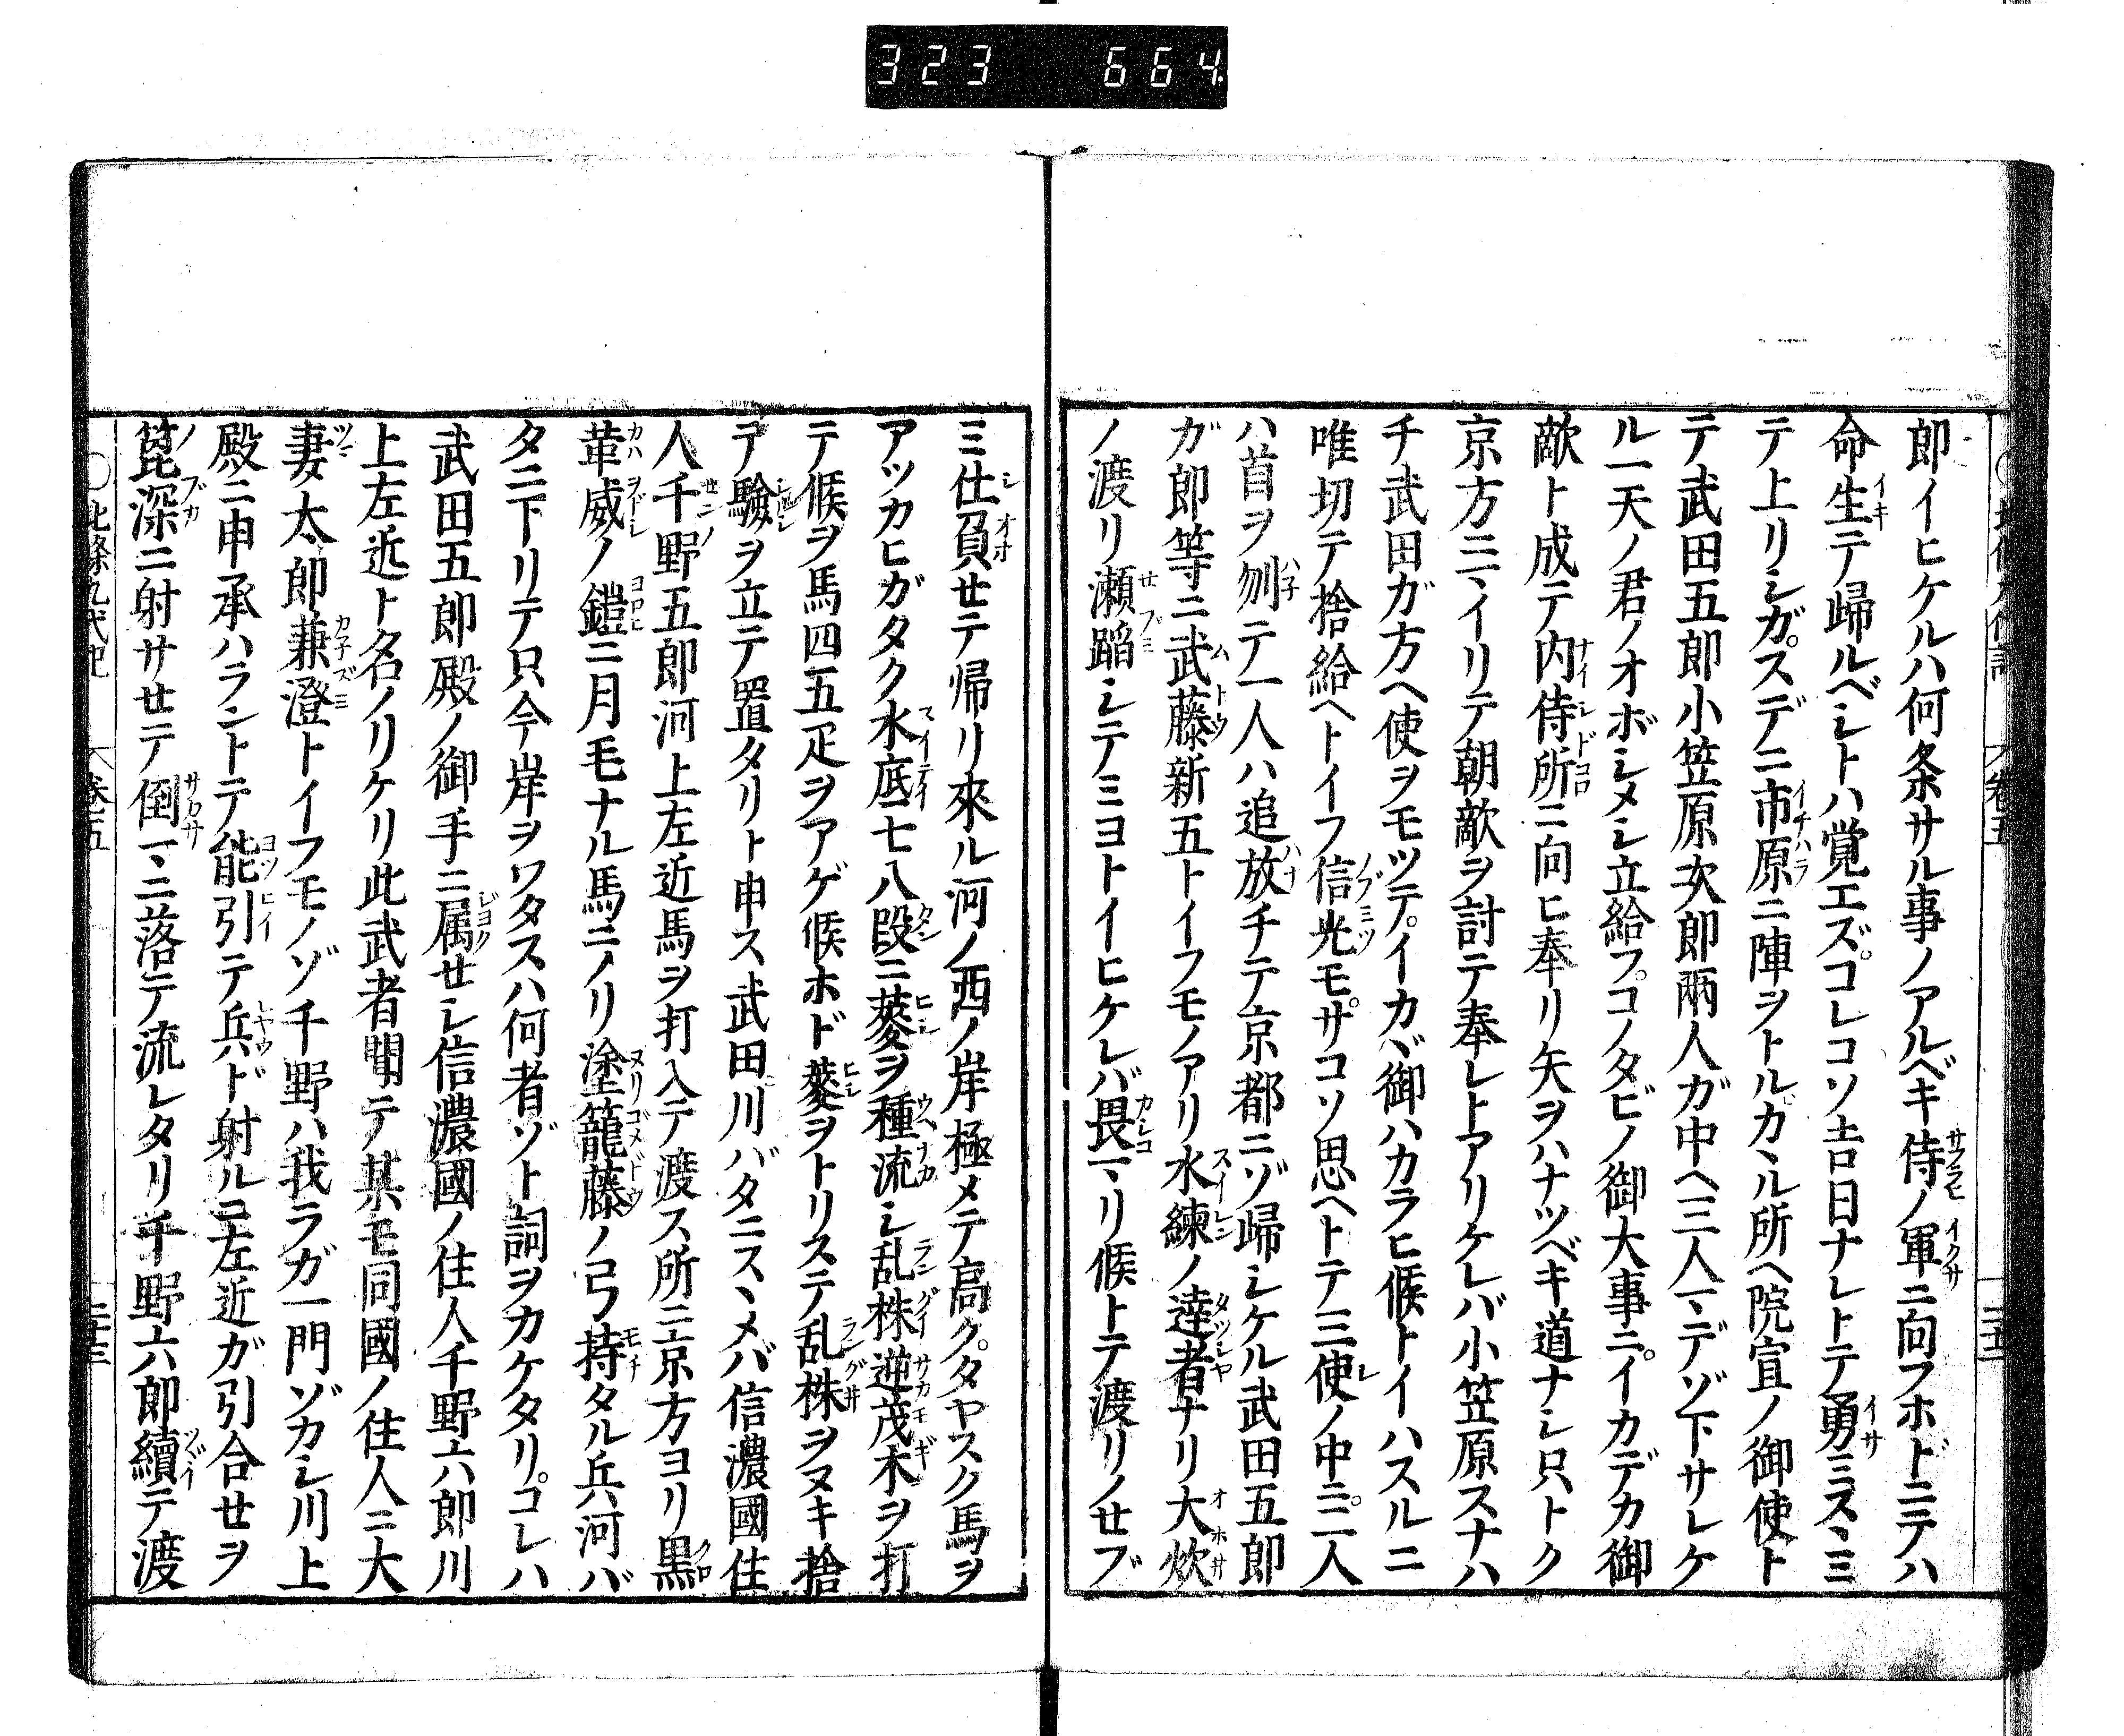 323 664
郎イヒケルハ何条サル事ノアルベキ侍ノ軍ニ向フホドニテハ
命生テ歸ルベシトハ覚エズコレコソ吉日ナレトテ勇ミスヽミ
テ上リシガスデニ市原ニ陣ヲトルカヽル所ヘ院宣ノ御使ト
テ武田五郎小笠原次郎兩人ガ中ヘ三人マデゾ下サレケ
ル一天ノ君ノオボシメシ立給フコノタビノ御大事ニイカデカ御
敵ト成テ内侍所ニ向ヒ奉リ矢ヲハナツベキ道ナシ只トク
京方ニイリテ朝敵ヲ討テ奉レトアリケレバ小笠原スナハ
チ武田ガ方ヘ使ヲモツテイカヾ御ハカラヒ候トイハスルニ
唯切テ捨給ヘトイフ信光モサコソ思ヘトテ三使ノ中ニ二人
ハ首ヲ刎テ一人ハ追放チテ京都ニゾ歸シケル武田五郎
ガ郎等ニ武藤新五トイフモノアリ水練ノ達者ナリ大炊
ノ渡リ瀬蹈シテミヨトイヒケレバ畏マリ候トテ渡リノセブ
ミ仕負セテ帰リ來ル河ノ西ノ岸極メテ高クタヤスク馬ヲ
アツカヒガタク水底七八段ニ菱ヲ種流シ乱株逆茂木ヲ打
テ候ヲ馬四五疋ヲアゲ候ホド菱ヲトリステ乱株ヲヌキ捨
テ驗ヲ立テ置タリト申ス武田川バタニスヽメバ信濃國住
人千野五郎河上左近馬ヲ打入テ渡ス所ニ京方ヨリ黒
革威ノ鎧ニ月毛ナル馬ニノリ塗籠藤ノ弓持タル兵河バ
タニ下リテ只今岸ヲワタスハ何者ゾト詞ヲカケタリコレハ
武田五郎殿ノ御手ニ属セシ信濃國ノ住人千野六郎川
上左近ト名ノリケリ此武者聞テ某モ同國ノ住人ニ大
妻太郎兼澄トイフモノゾ千野ハ我ラガ一門ゾカシ川上
殿ニ申承ハラントテ能引テ兵ド射ル左近ガ引合セヲ
箆深ニ射サセテ倒マニ落テ流レタリ千野六郎續テ渡
〇北條九代記 卷五